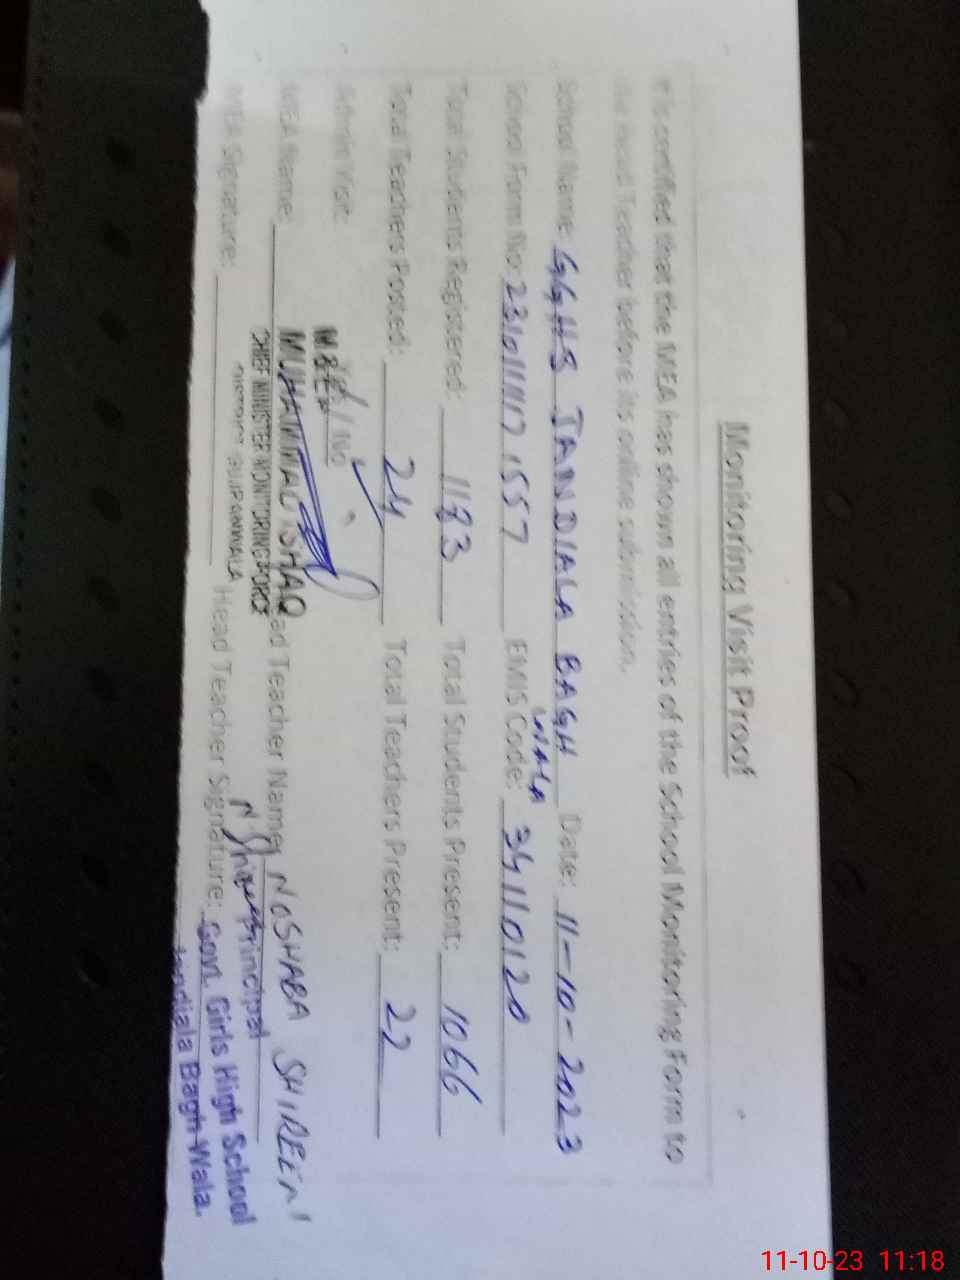 Monitoring Visit Proof
It is certified that the MEA has shown all entries of the School Monitoring Form to
the Head Teacher before its online submission.
School Name: GGHS JANDIALA BAGH WALA Date: 11-10-2023
School Form No: EMIS Code: 34110120
Total Students Registered: 1183 Total Students Present: 1066
Total Teachers Posted: 24 Total Teachers Present: 22
Admin Visit: Yes / No ✓
MEA Name: MUHAMMAD ISHAQ Head Teacher Name: NOSHABA SHIREEN
M&EA
CHIEF MINISTER MONITORING FORCE
DISTRICT GUJRANWALA
MEA Signature: Head Teacher Signature:
Principal
Govt. Girls High School
Jandiala Bagh Wala.
11-10-23 11:18